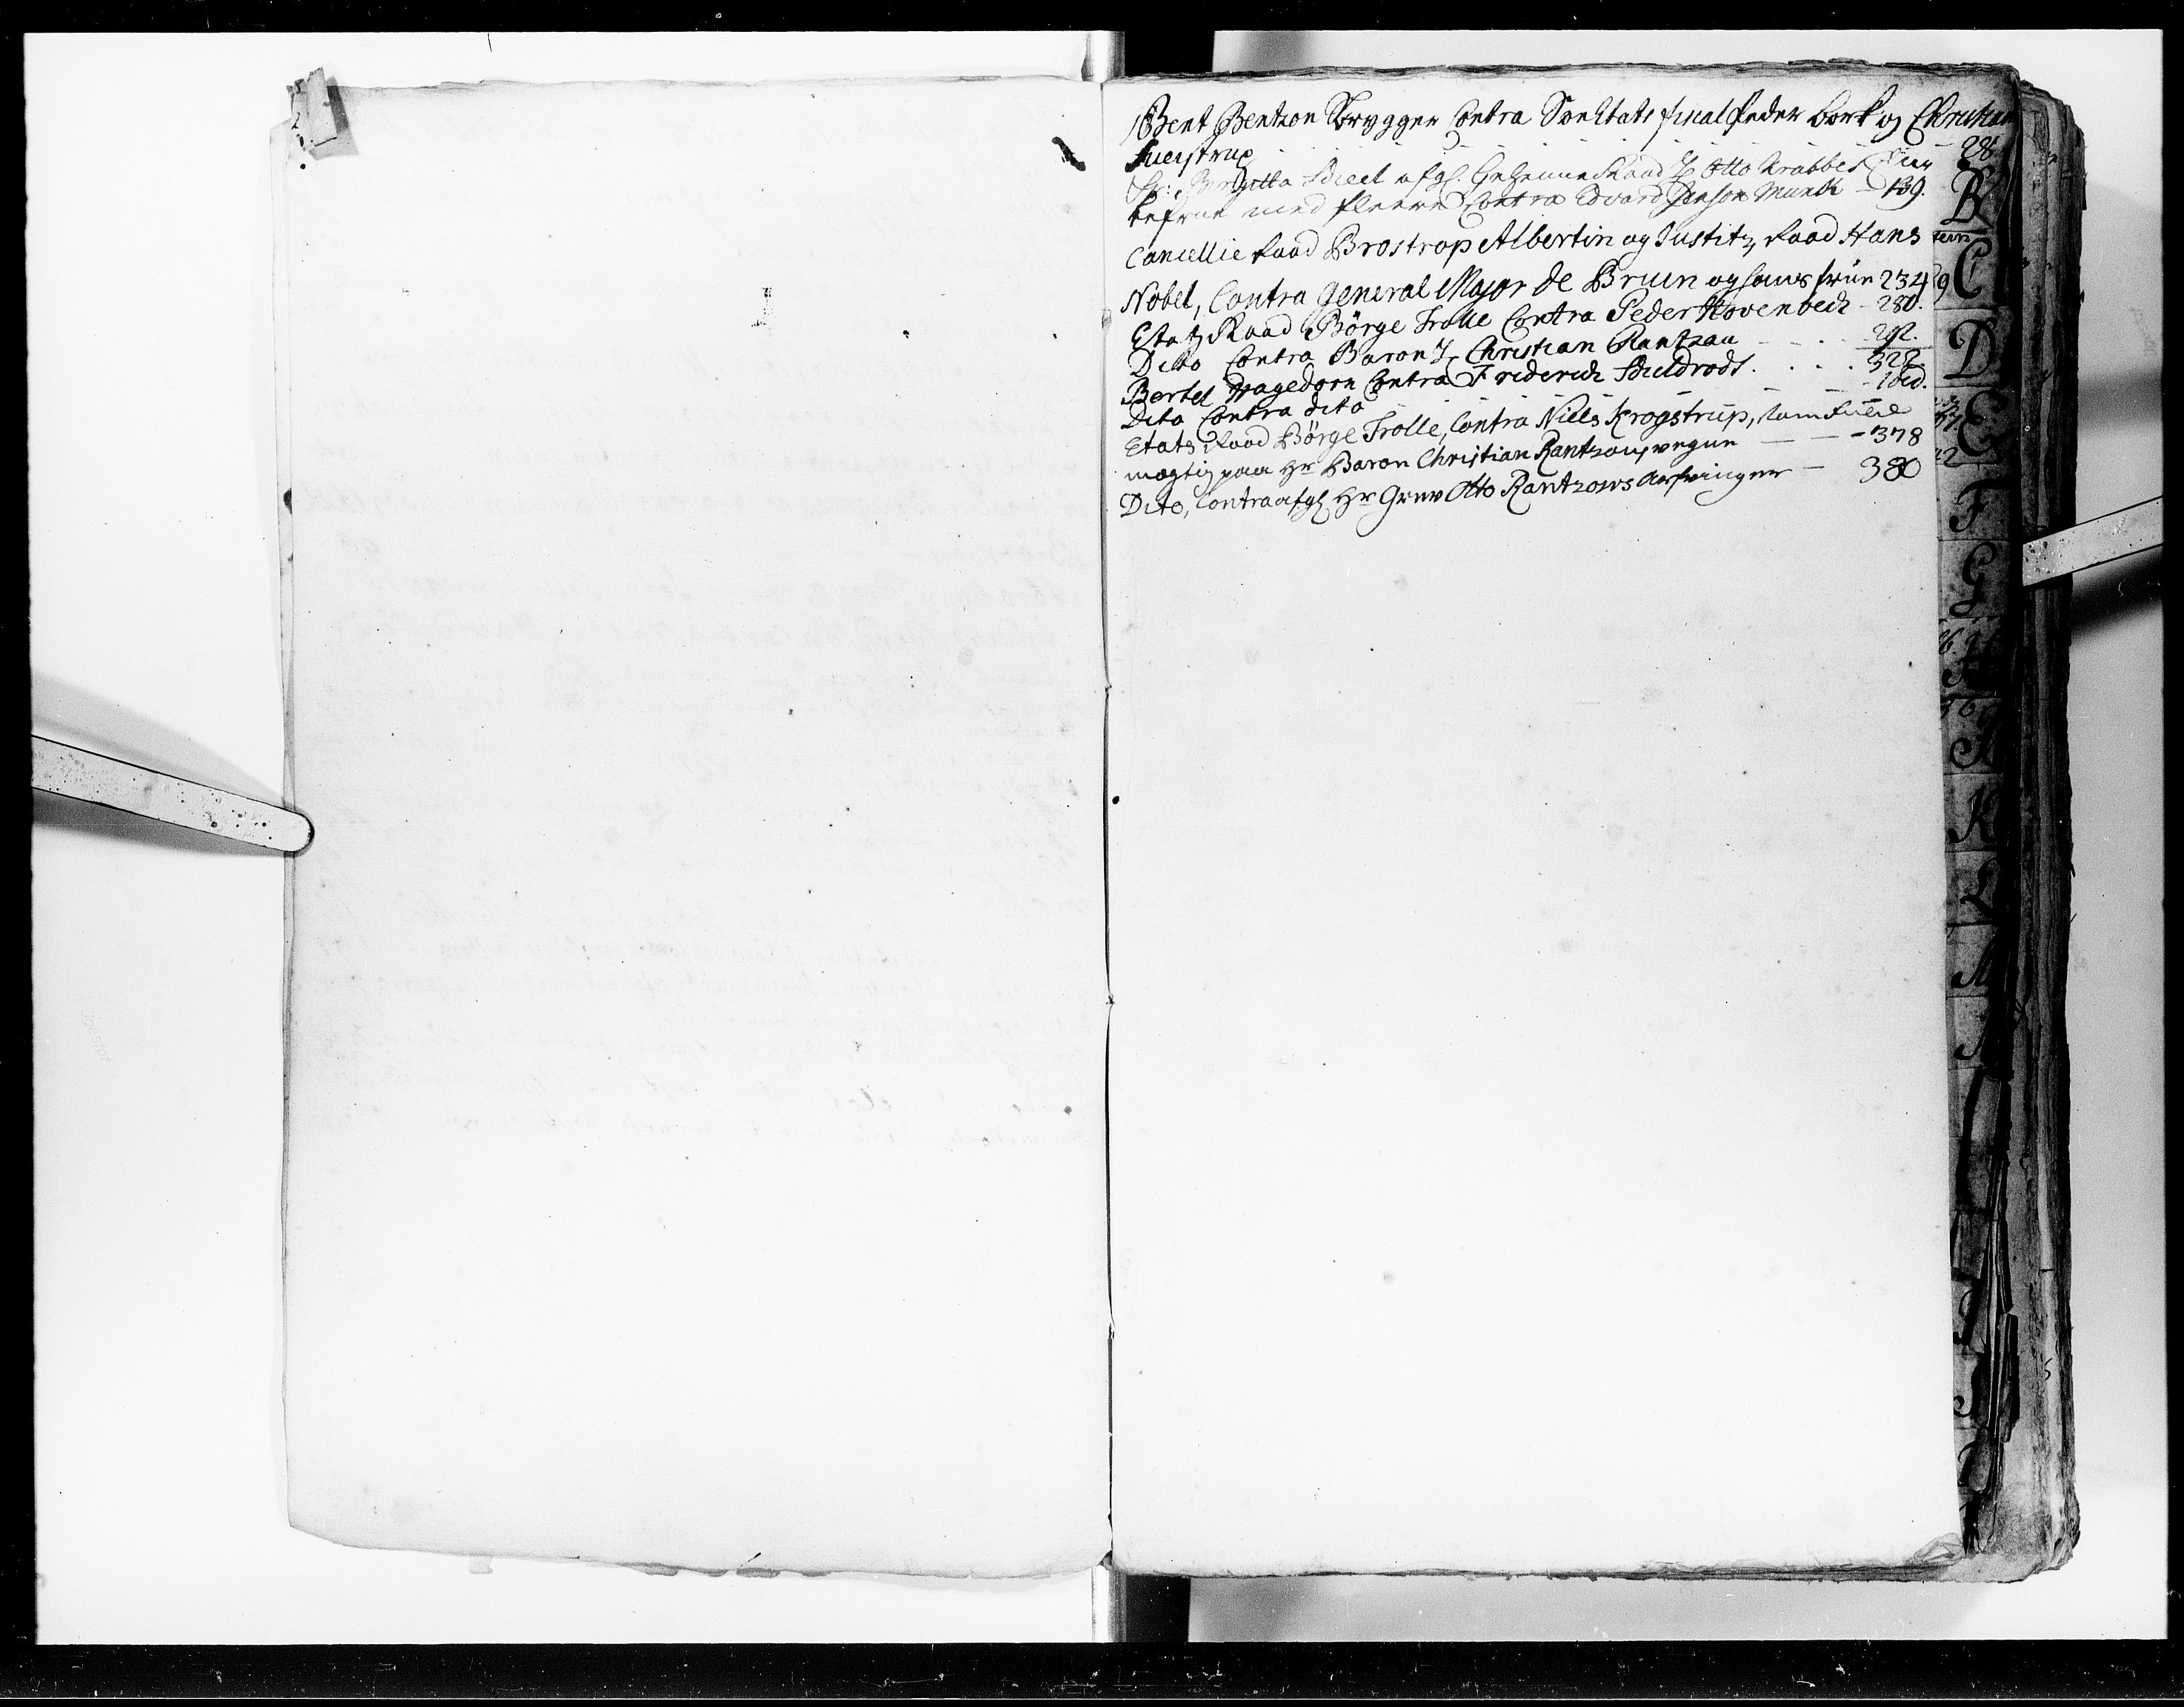 Bent Bentzon Brygger Contra Peder Bork og Christian
Juerstrup 28
Fr: Birgitta Skeel afgl. Geheime Raad H Otto Krabbes
kefrue med fleere Contra Edvard Jenson Munk - 139.
Cancellie Raad Brostrop Albertin og Justitz Raad Hans
Nobel, Contra General Major de Bruin og hans frùe 234
Etatz Raad Börge Trolle Contra Peder Hovenbeck - 280.
Dito Contra Baron H Christian Rantzau - - . . 292.
Bertel Hagedorn Contra Friderich Schildrodt . . . . 322
Dito Contra dito - - - - - Ibid.
Etats Raad Börge Trolle, Contra Niells Krogstrup, som Fuld
mægtig paa Hr Baron Christian Rantzous vegne — — - 378
Dito, Contra afgl Hr Grev Otto Rantzows Arfvinger — 380
B
C
D
E
F
G
H
I
K
L
M